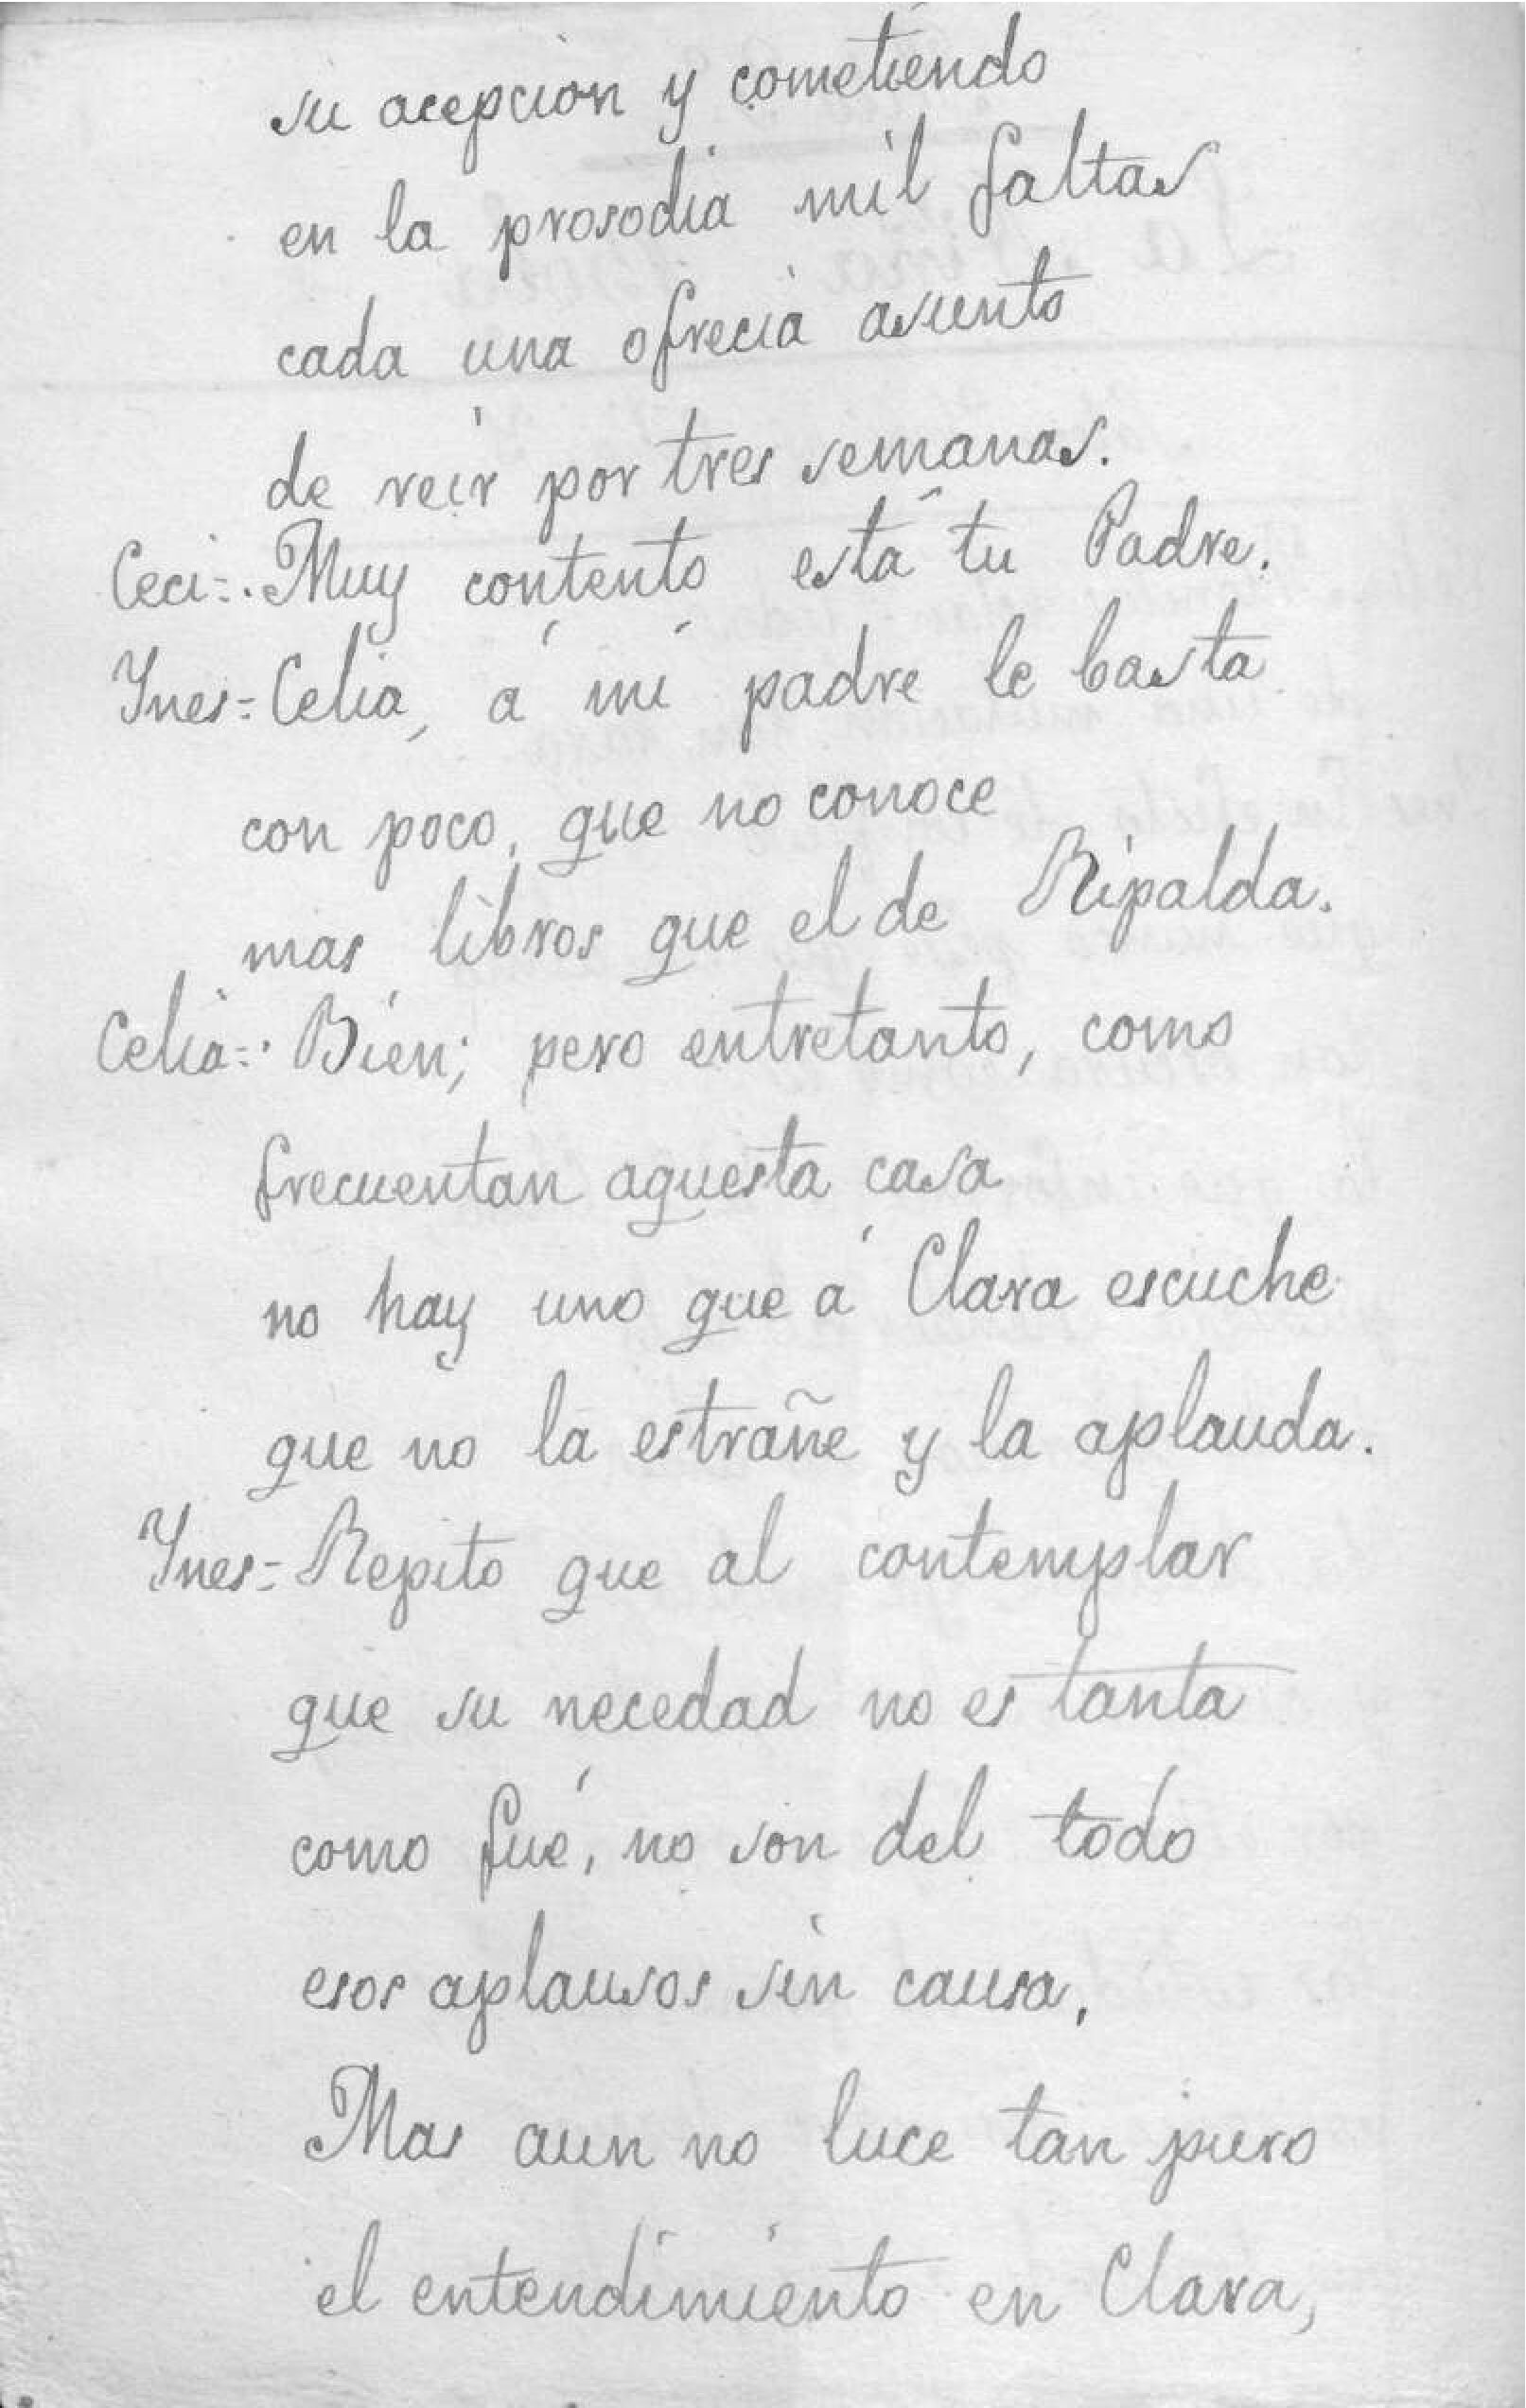 su acepcion y cometiendo
en la prosodia mil faltas
cada una ofrecia asunto
de reir por tres semanas.
Ceci=. Muy contento está tu Padre.
Ynes= Celia, á mí padre le basta
con poco, que no conoce
mas libros que el de Ripalda.
Celia=. Bien; pero entretanto, como
frecuentan aquesta casa
no hay uno que á Clara escuche
que no la estrañe y la aplauda.
Ynes= Repito que al contemplar
que su necedad no es tanta
como fué, no son del todo
esos aplausos sin causa,
Mas aun no luce tan puro
el entendimiento en Clara,